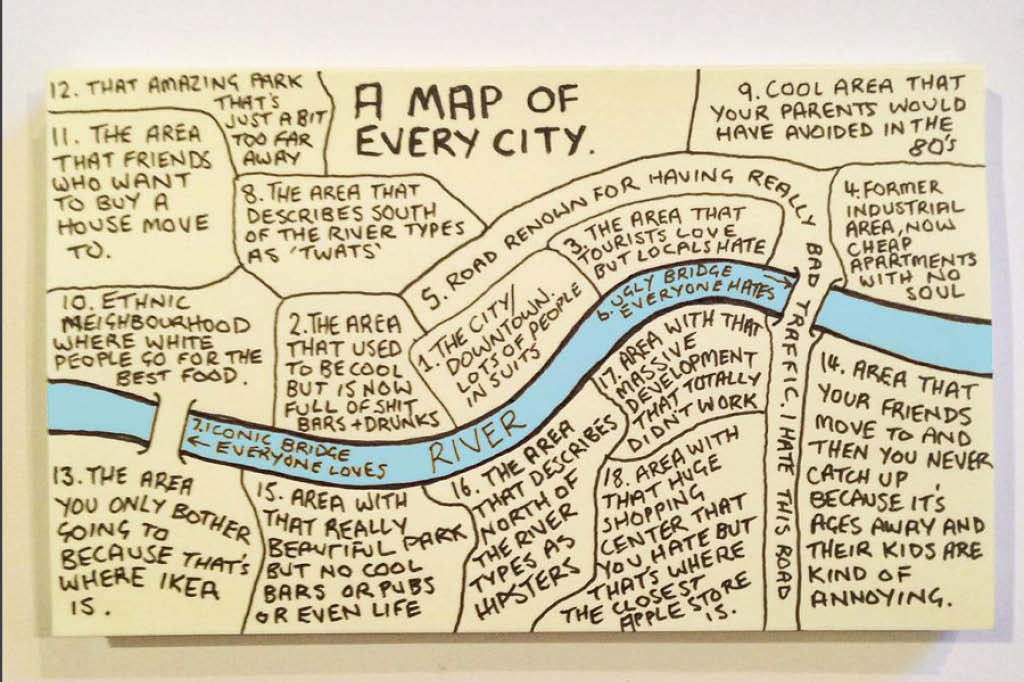 12. THAT AMAZING PARK
THAT'S
JUST A BIT
TOO FAR
AWAY
A MAP OF
EVERY CITY.
9. COOL AREA THAT
YOUR PARENTS WOULD
HAVE AVOIDED IN THE
80'S
11. THE AREA
THAT FRIENDS
WHO WANT
TO BUY A
HOUSE MOVE
TO.
8. THE AREA THAT
DESCRIBES SOUTH
OF THE RIVER TYPES
AS 'TWATS'
5. ROAD RENOWN FOR HAVING REALLY BAD TRAFFIC, I HATE THIS ROAD
3. THE AREA THAT
TOURISTS LOVE
BUT LOCALS HATE
4. FORMER
INDUSTRIAL
AREA, NOW
CHEAP
APARTMENTS
WITH NO
SOUL
10. ETHNIC
NEIGHBOURHOOD
WHERE WHITE
PEOPLE GO FOR THE
BEST FOOD.
2. THE AREA
THAT USED
TO BE COOL
BUT IS NOW
FULL OF SHIT
BARS + DRUNKS
1. THE CITY/
DOWNTOWN.
LOTS OF PEOPLE
IN SUITS
6. UGLY BRIDGE →
EVERYONE HATES
7. ICONIC BRIDGE
← EVERYONE LOVES
RIVER
17. AREA WITH THAT
MASSIVE
DEVELOPMENT
THAT TOTALLY
DIDN'T WORK
14. AREA THAT
YOUR FRIENDS
MOVE TO AND
THEN YOU NEVER
CATCH UP
BECAUSE IT'S
AGES AWAY AND
THEIR KIDS ARE
KIND OF
ANNOYING.
13. THE AREA
YOU ONLY BOTHER
GOING TO
BECAUSE THAT'S
WHERE IKEA
IS.
15. AREA WITH
THAT REALLY
BEAUTIFUL PARK
BUT NO COOL
BARS OR PUBS
OR EVEN LIFE
16. THE AREA
THAT DESCRIBES
NORTH OF
THE RIVER
TYPES AS
HIPSTERS
18. AREA WITH
THAT HUGE
SHOPPING
CENTER THAT
YOU HATE BUT
THAT'S WHERE
THE CLOSEST
APPLE STORE
IS.